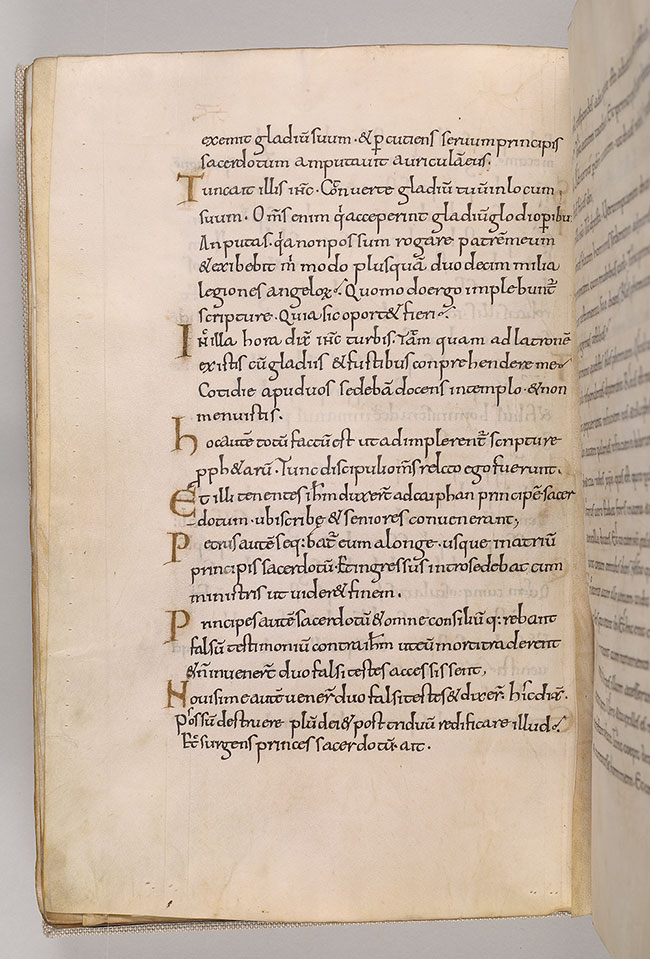 exemit gladiū suum · & ꝑcutiens seruum principis
sacerdotum amputauit auriculā eius.
Tunc ait illis ihc · Conuerte gladiū tuū in locum
suum · Om̄s enim q̄ acceperint gladiū glodio ꝑibu
An putas · q̄a non possum rogare patrē meum
& exibebit m̄ modo plusquā duodecim milia
legiones angeloꝝ Quomodo ergo implebunt̄
scripture · Quia sic oport& fieri
In̄ illa hora dix̄ ihc turbis. Tām quam ad latronē
existis cū gladiis & fustibus conprehendere me
Cotidie apud uos sedebā docens in templo · & non
menuistis.
hoc autē totū factū est ut adimplerent̄ scripture
pph&arū · Tunc discipuli om̄s relcto ego fuerunt.
Et illi tenentes ihm̄ duxer̄t ad caiphan principē sacer
dotum · ubi scribę & seniores conuenerant;
Petrus autē seq: bat̄ eum alonge · usque in atriū
principis sacerdotū · Et ingressus intro sedebat cum
ministris ut uider& finem.
Principes autē sacerdotū & omne consiliū q: rebant
falsū testimoniū contra ihm̄ ut eū morti traderent
& n̄ inuener̄t duo falsi testes accessissent,
Nouisime autē uener̄ duo falsi testes & dixer̄ hic dix̄ ·
Possū destruere plū dei & post triduū redificare illud
Et surgens princes sacerdotū · ait ·